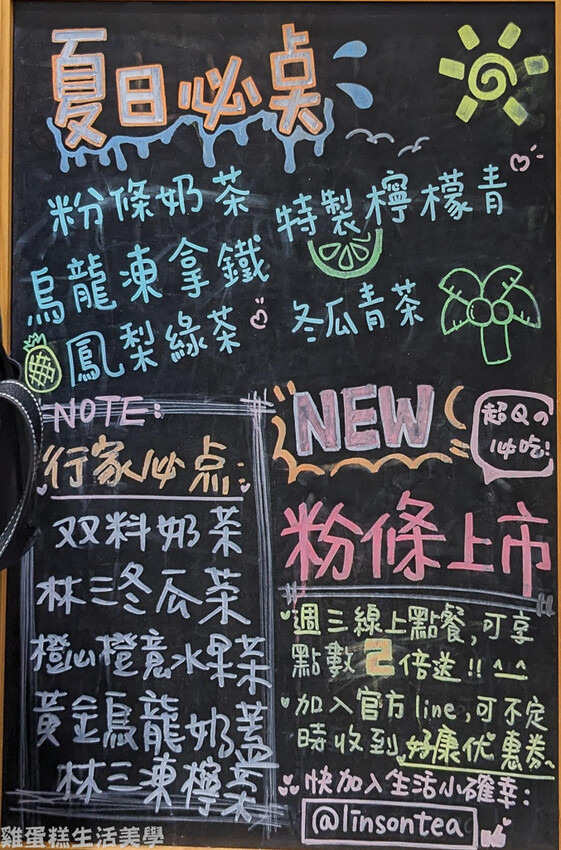 夏日必点
粉條奶茶
特製檸檬青
烏龍凍拿鐵
鳳梨綠茶
冬瓜青茶
NOTE:
行家必点:
双料奶茶
林三冬瓜茶
橙心橙意水果茶
黃金烏龍奶蓋
林三凍檸茶
NEW
超Qの
必吃!
粉條上市
週三線上點餐,可享
點數2倍送!!^_^
加入官方line,可不定
時收到好康优惠券
快加入生活小確幸:
@linsontea
雞蛋糕生活美學